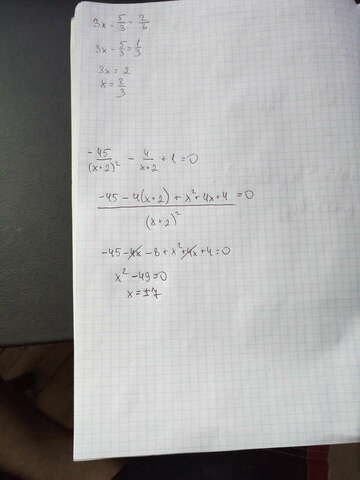 3x - 5/3 = 2/6
3x - 5/3 = 1/3
3x = 2
x = 2/3
-45/(x+2)² - 4/x+2 + 1 = 0
-45 - 4(x+2) + x² + 4x + 4/(x+2)² = 0
-45 - 4x - 8 + x² + 4x + 4 = 0
x² - 49 = 0
x = ±7